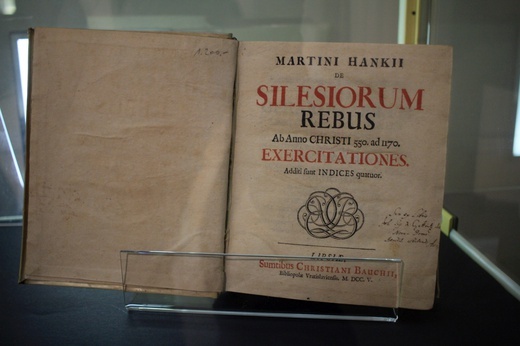 MARTINI HANKII
DE
SILESIORUM
REBUS
Ab Anno CHRISTI 550. ad 1170.
EXERCITATIONES.
Additi sunt INDICES quatuor.
LIPSIÆ,
Sumtibus CHRISTIANI BAUCHII,
Bibliopolæ Vratislaviensis. M. DCC. V.